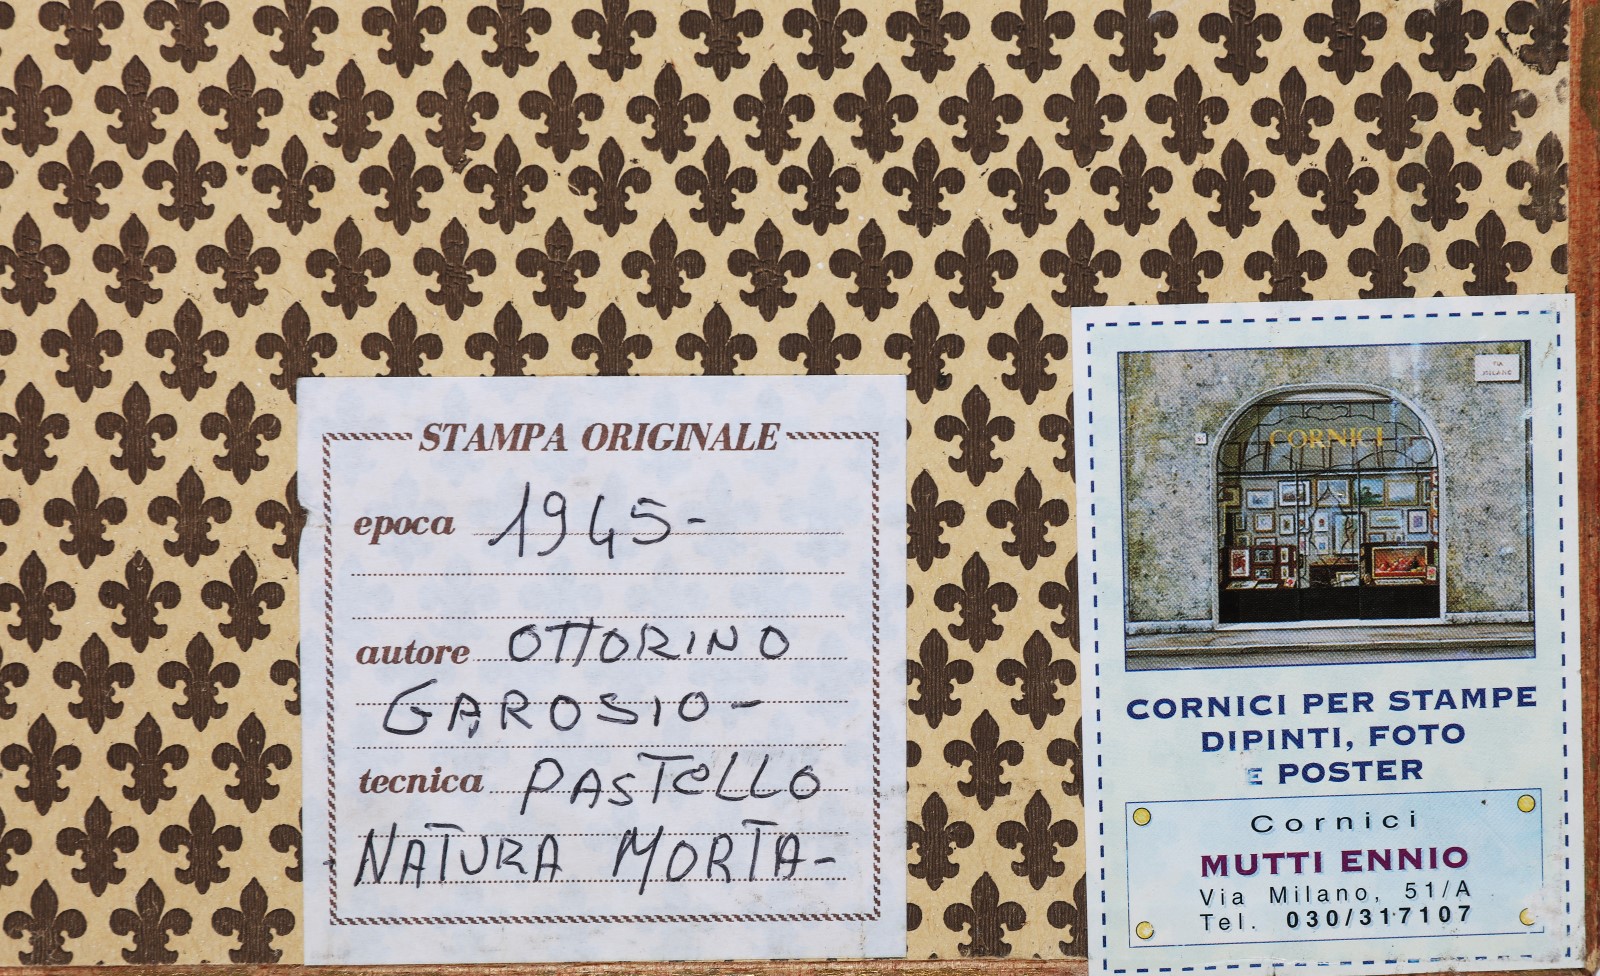 STAMPA ORIGINALE
epoca 1945-
autore OTTORINO
GAROSIO-
tecnica PASTELLO
-NATURA MORTA-
VIA
MILANO
CORNICI
CORNICI PER STAMPE
DIPINTI, FOTO
E POSTER
Cornici
MUTTI ENNIO
Via Milano, 51/A
Tel. 030/317107